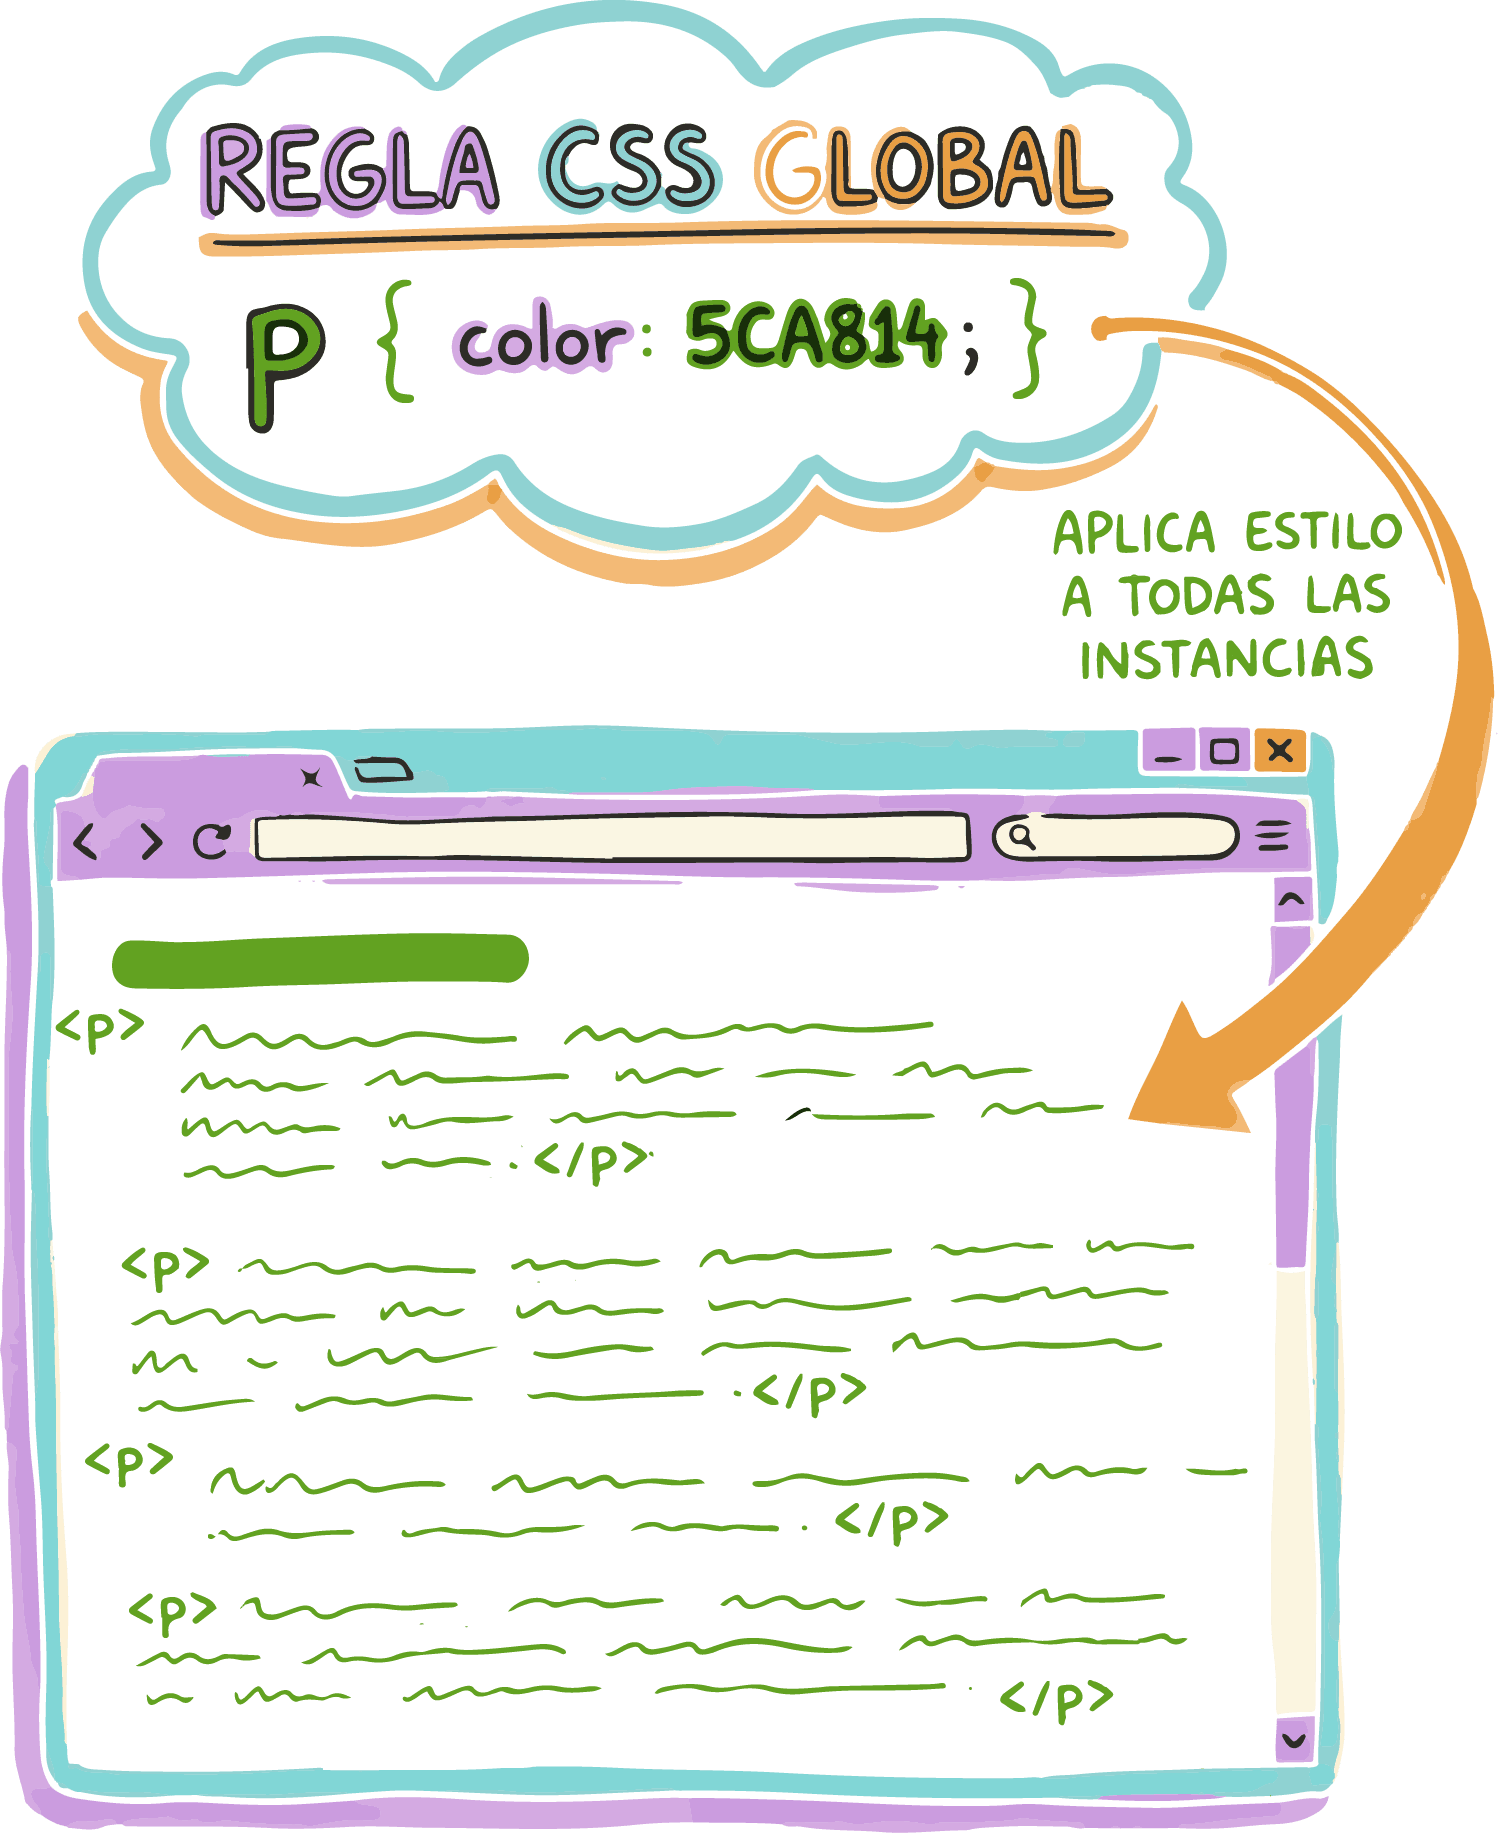 REGLA CSS GLOBAL
P { color: 5CA814; }
APLICA ESTILO
A TODAS LAS
INSTANCIAS
<p>
</p>
<p>
</p>
<p>
</p>
<p>
</p>